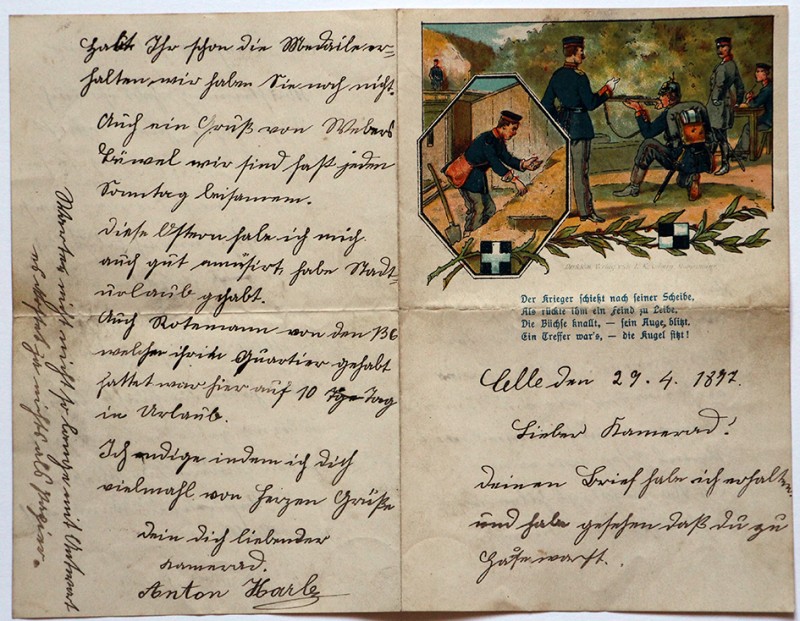 Der Krieger schießt nach seiner Scheibe,
Als rückte ihm ein Feind zu Leibe.
Die Büchse knallt, — sein Auge, blitzt.
Ein Treffer war's, — die Kugel sitzt!
Celle den 29. 4. 1897.
Lieber Kamerad!
Deinen Brief habe ich erhalten
und habe gesehen daß du zu
Hause warst.
Habt Ihr schon die Medaile er-
halten, wir haben Sie noch nicht.
Auch ein Gruß von Webers
wir sind fast jeden
Sonntag beisamem.
Diese Ostern habe ich mich
auch gut amüsirt habe Stadt-
urlaub gehabt.
Auch Rotemann von den
welcher Quartier gehabt
hattet war hier auf 10 Tag
in Urlaub.
Ich endige indem ich dich
vielmahl von Herzen Grüße
Dein dich liebender
Kamerad.
Anton Harle
Wartes nicht so lange mit Antwort
es kostet ja nichts als Papier.